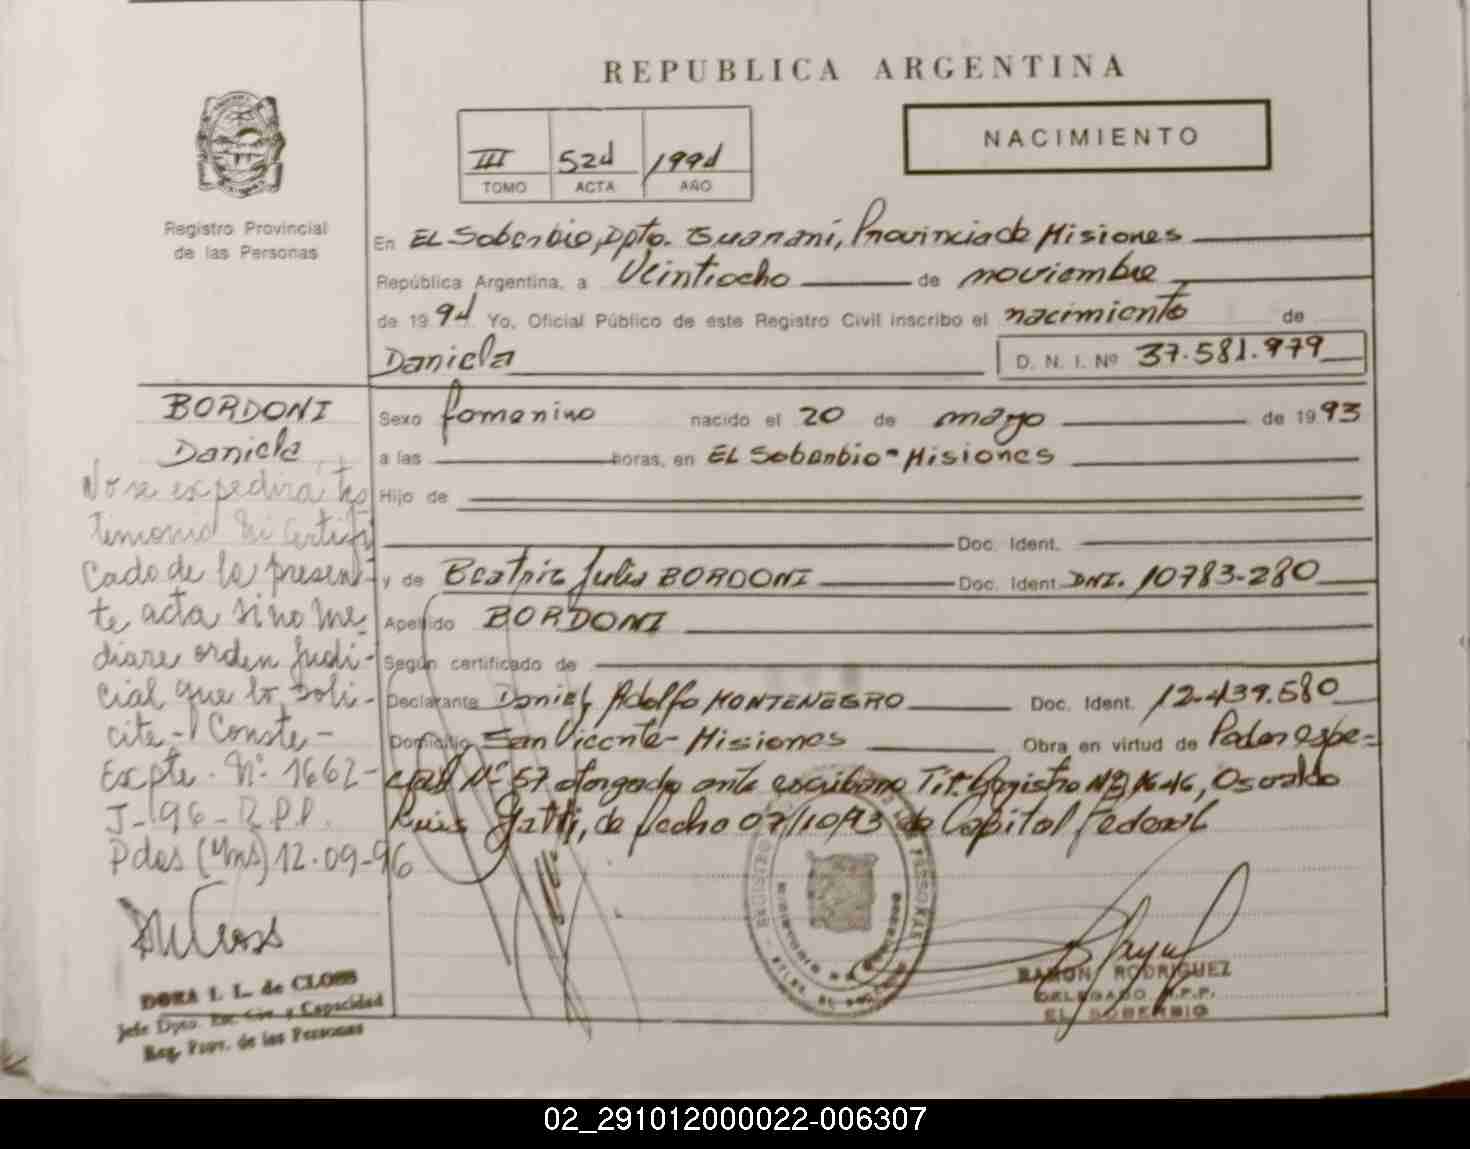 REPUBLICA ARGENTINA
NACIMIENTO
III 524 1994
TOMO ACTA AÑO
Registro Provincial
de las Personas
En EL Soberbio, Dpto. Guaraní, Provincia de Misiones
República Argentina, a Veintiocho de noviembre
de 1994 Yo, Oficial Público de este Registro Civil inscribo el nacimiento de
Daniela
D. N. I. Nº 37.581.979
BORDONI
Daniela
Sexo femenino nacido el 20 de mayo de 1993
a las horas, en EL Soberbio - Misiones
Hijo de
Doc. Ident.
y de Beatriz Julia BORDONI Doc. Ident. DNI. 10783.280
Apellido BORDONI
Según certificado de
Declarante Daniel Adolfo MONTENEGRO Doc. Ident. 12.439.580
Domicilio San Vicente - Misiones Obra en virtud de Poder espe=
cial Nº 57 otorgado ante escribano Tit. Registro Nº 1646, Osvaldo
Luis Gatti, de fecho 07/10/93 de Capital Federal
No se expedira tes
timonio ni certifi
cado de la presen-
te acta sino me
diare orden judi-
cial que lo soli-
cite - Conste -
Expte. Nº 1662-
J-96-R.P.P.
Pdas (Mns) 12-09-96
DORA I. L. de CLOSS
Jefe Dpto. Est. Civ. y Capacidad
Reg. Prov. de las Personas
RAMON RODRIGUEZ
DELEGADO R.P.P.
EL SOBERBIO
02_291012000022-006307